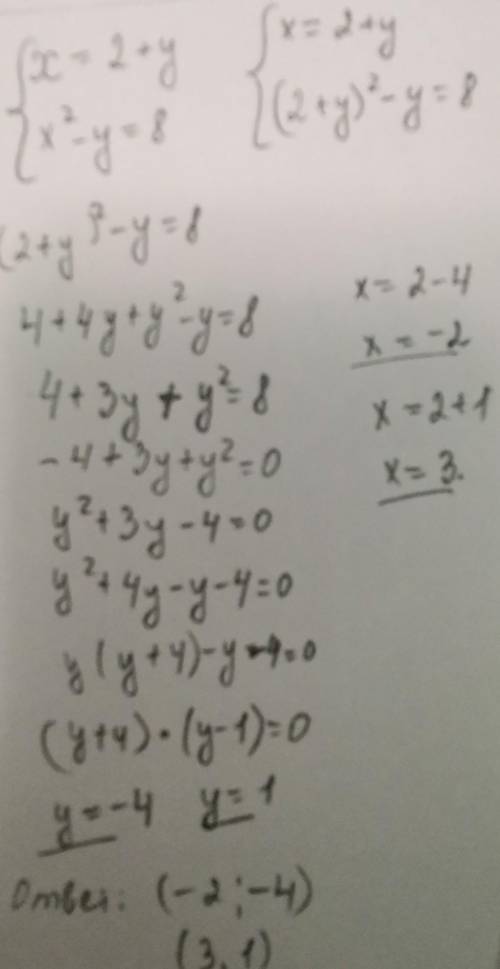 x = 2 + y
x² - y = 8
x = 2 + y
(2 + y)² - y = 8
(2 + y)² - y = 8
4 + 4y + y² - y = 8
4 + 3y + y² = 8
- 4 + 3y + y² = 0
y² + 3y - 4 = 0
y² + 4y - y - 4 = 0
y (y + 4) - y - 4 = 0
(y + 4) · (y - 1) = 0
y = -4 y = 1
x = 2 - 4
x = -2
x = 2 + 1
x = 3.
Ответ: (-2 ; -4)
(3, 1)